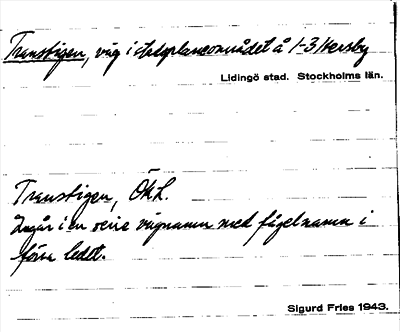 Transtigen, väg i stadsplaneområdet å 1-3 Hersby
Lidingö stad. Stockholms län.
Transtigen, ÖhL.
Ingår i en serie vägnamn med fågelnamn i
förra ledet.
Sigurd Fries 1943.